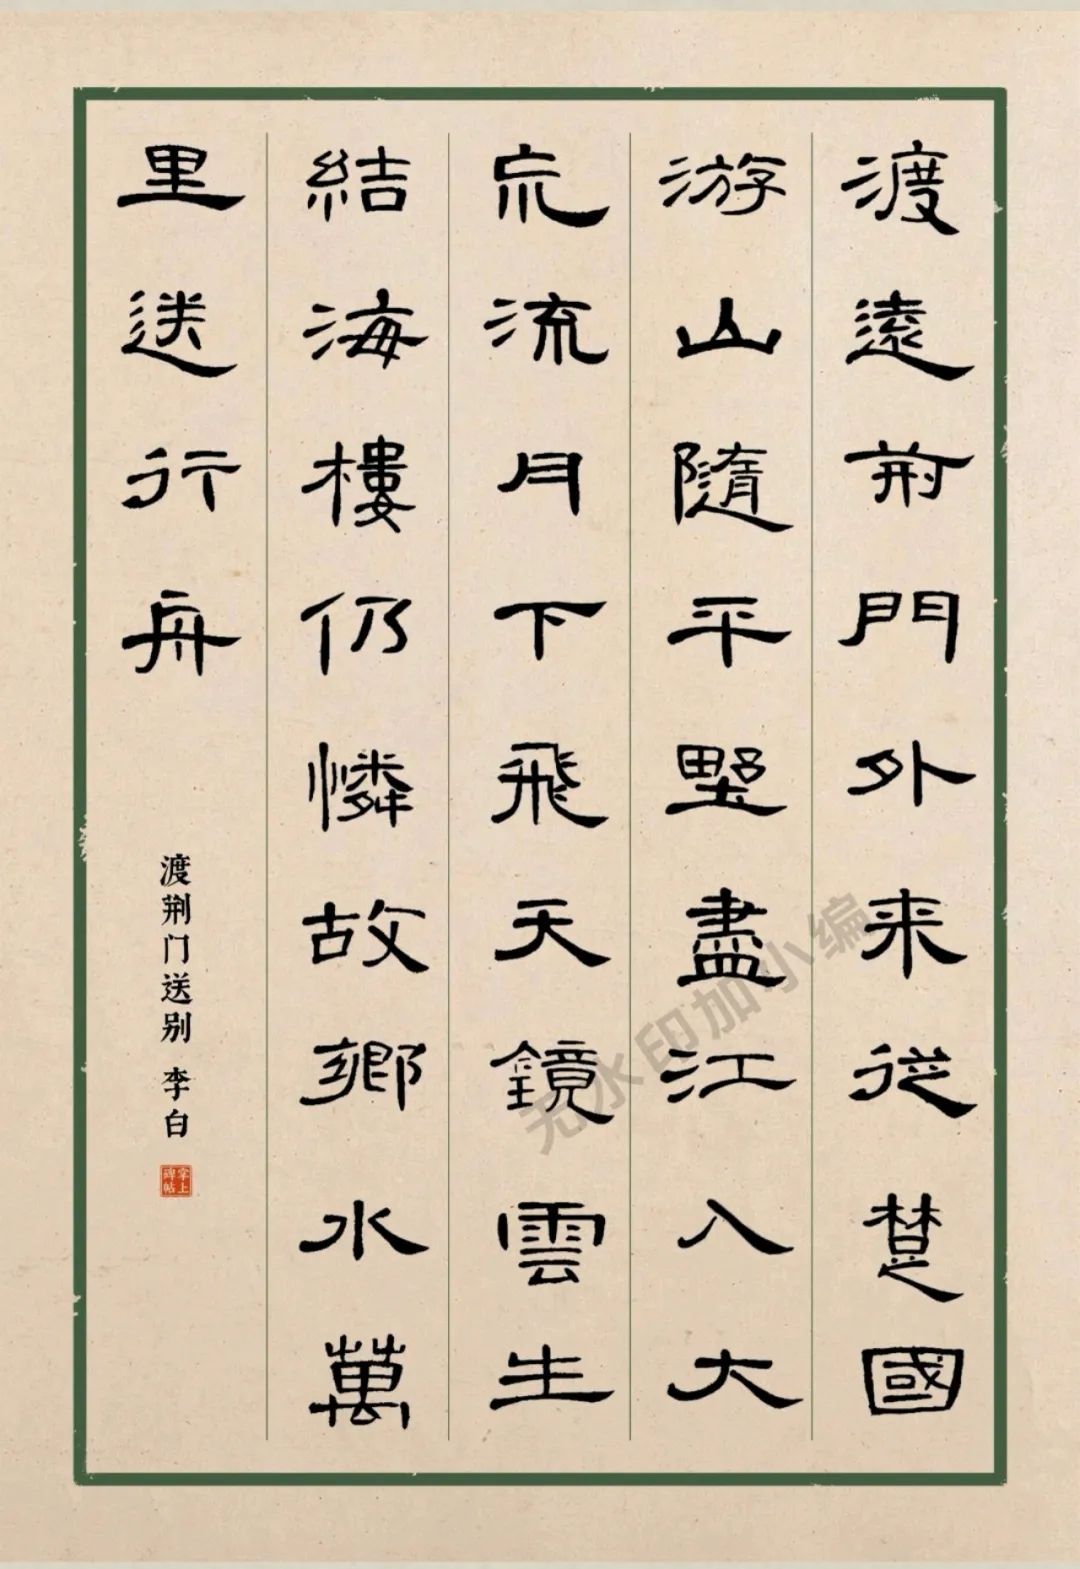 渡遠荊門外来從楚國
游山隨平墅盡江入大
荒流月下飛天鏡雲生
結海樓仍憐故鄉水萬
里送行舟
渡荆门送别 李白
掌上碑帖
无水印加小编